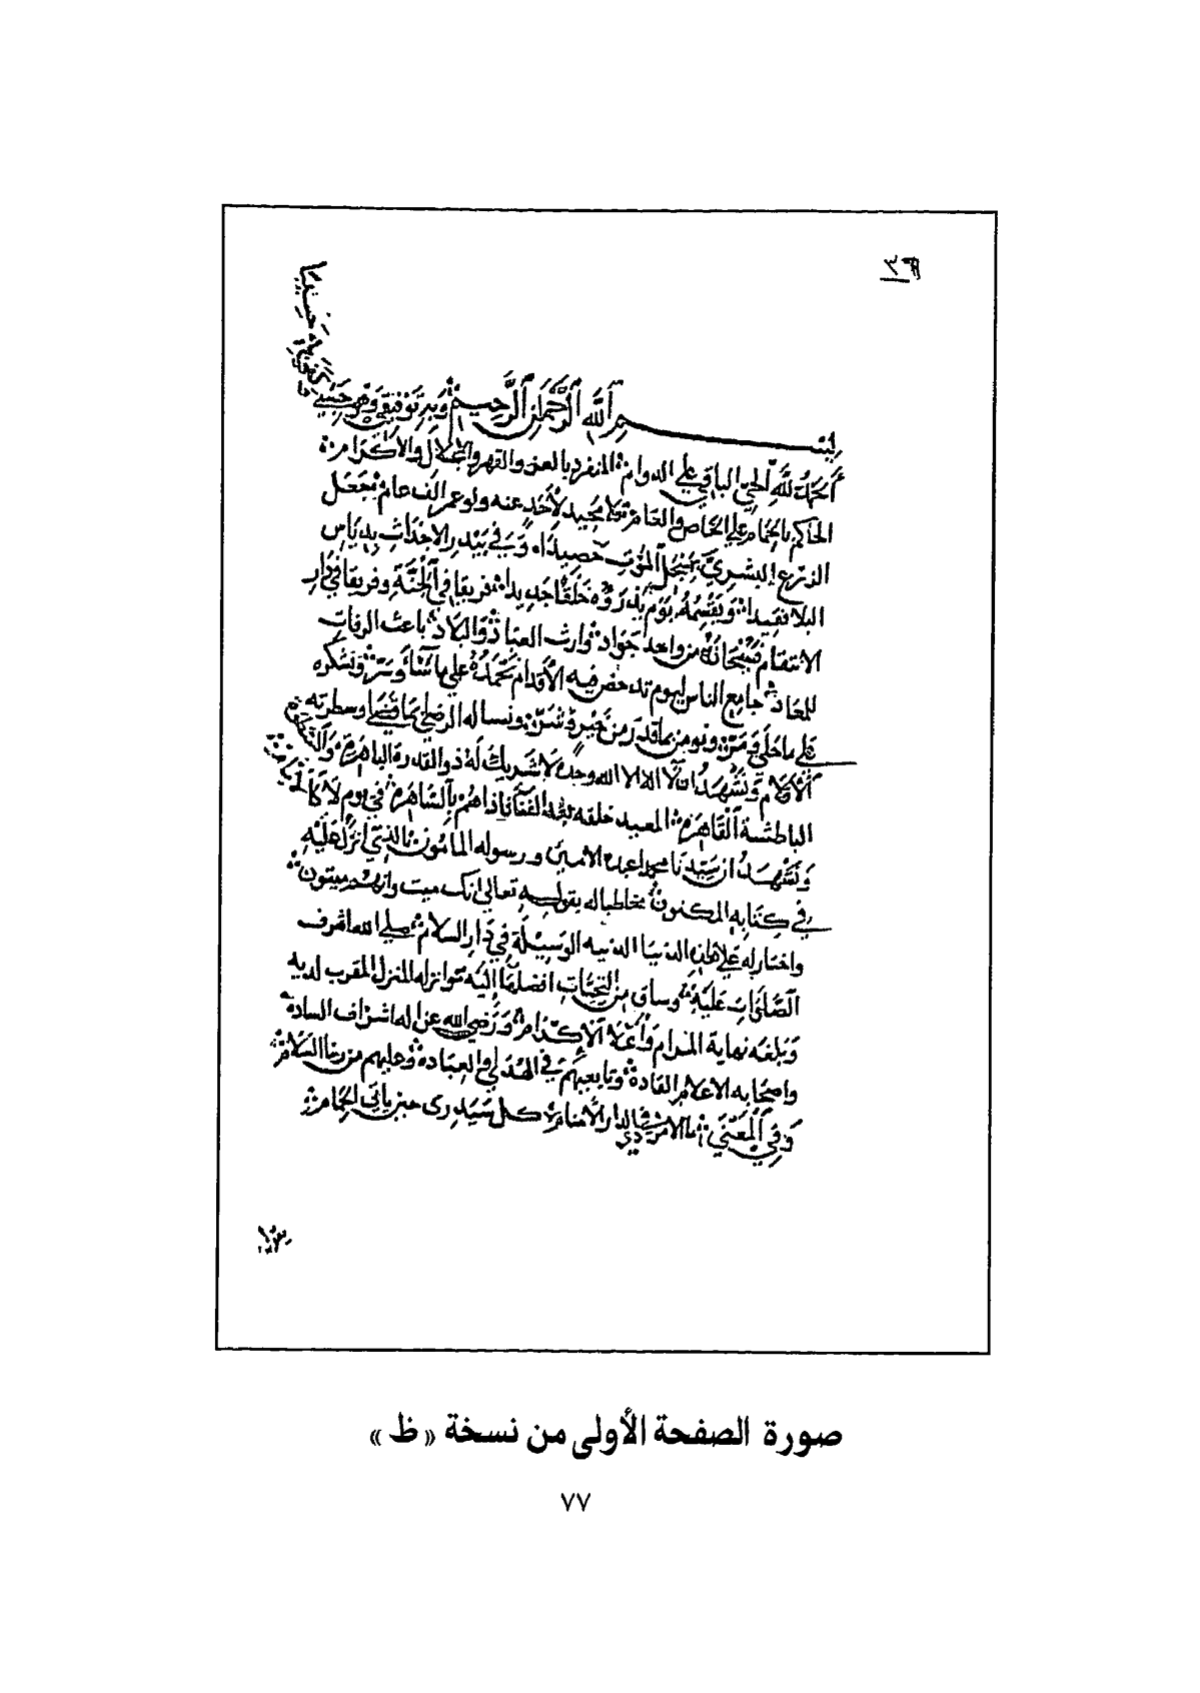 ٣٩
بسم الله الرحمن الرحيم وبه توفيقي وهو حسبي
الحمد لله الحي الباقي على الدوام المنفرد بالعز والقهر والجلال والاكرام
الحاكم بالحمام على الخاص والعام فلا محيد لأحد عنه ولو عمر الف عام فجعل
الزرع البشري بمنجل الموت حصيدا وفي بيدر الاجداث بدياس
البلا فقيدا ويقسمه يوم يذروه خلقا جديدا فريقا في الجنة وفريقا في دار
الانتقام فسبحانه من واحد جواد وارث العباد والبلاد باعث الرفات
للمعاد جامع الناس ليوم تدحض فيه الأقدام نحمده على ما ساء وسر ونشكره
على ما حلى ومر ونومن بما قدر من خير وشر ونساله الرضى بما قضى وسطرته
الأقلام ونشهد ان لا اله الا الله وحده لا شريك له ذو القدرة الباهرة
الباطشة القاهرة المعيد خلقه بعد الفنا فاذاهم بالساهرة في يوم لا كالأيام
ونشهد ان سيدنا محمدا عبده الامين ورسوله المامون الذي انزل عليه
في كتابه المكنون مخاطبا له بقوله تعالى انك ميت وانهم ميتون
واختار له على هذه الدنيا الدنيه الوسيلة في دار السلام صلى الله اشرف
الصلوات عليه وساق من التحيات افضلها اليه وانزله المنزل المقرب لديه
وبلغه نهاية المرام وأعلا الإكرام ورضي الله عن اله اشراف السادة
واصحابه الاعلام القادة وتابعيهم في الهدى والعبادة وعليهم من ربنا السلام
وفي المعنى
صورة الصفحة الأولى من نسخة « ظ »
٧٧